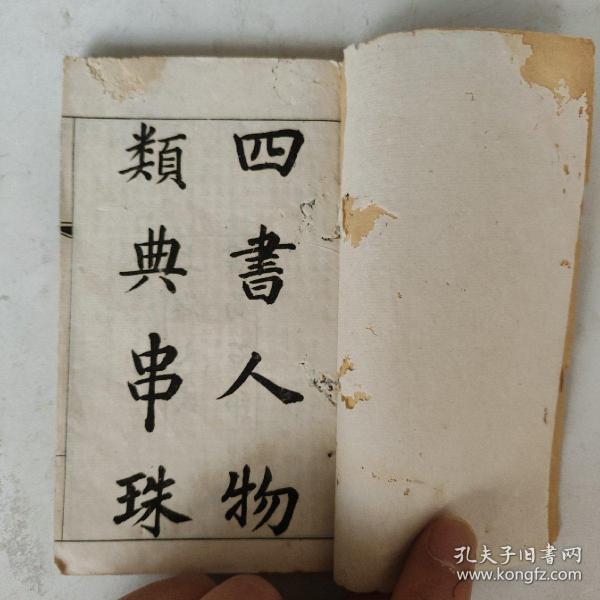 四書人物
類典串珠
孔夫子旧书网
www.kongfz.com